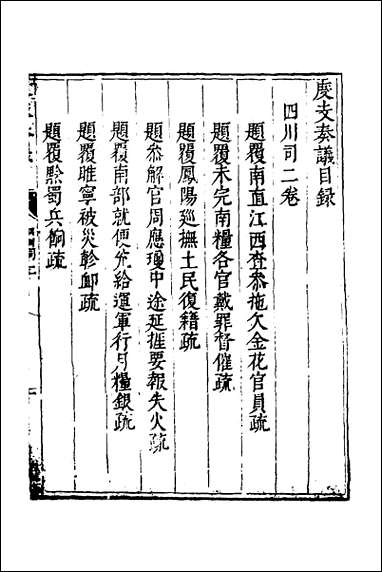 度支奏議目錄
四川司二卷
題覆南直江西查叅拖欠金花官員疏
題覆未完南糧各官戴罪督催疏
題覆鳳陽巡撫土民復籍疏
題叅解官周應瓊中途延捱要報失火疏
題覆南部就便兊給運軍行月糧銀疏
題覆睢寧被災軫卹疏
題覆黔蜀兵餉疏